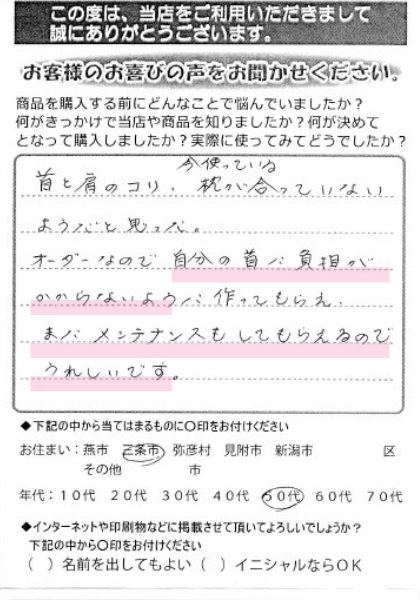 この度は、当店をご利用いただきまして
誠にありがとうございます。
お客様のお喜びの声をお聞かせください。
商品を購入する前にどんなことで悩んでいましたか？
何がきっかけで当店や商品を知りましたか？何が決めて
となって購入しましたか？実際に使ってみてどうでしたか？
今使っている
首と肩のコリ、枕が合っていない
ようだと思った。
オーダーなので自分の首に負担が
かからないように作ってもらえ、
またメンテナンスもしてもらえるので
うれしいです。
◆下記の中から当てはまるものに〇印をお付けください
お住まい：燕市 三条市 弥彦村 見附市 新潟市 区
その他 市
年代：１０代 ２０代 ３０代 ４０代 ５０代 ６０代 ７０代
◆インターネットや印刷物などに掲載させて頂いてよろしいでしょうか？
下記の中から〇印をお付けください
（ ）名前を出してもよい（ ）イニシャルならＯＫ